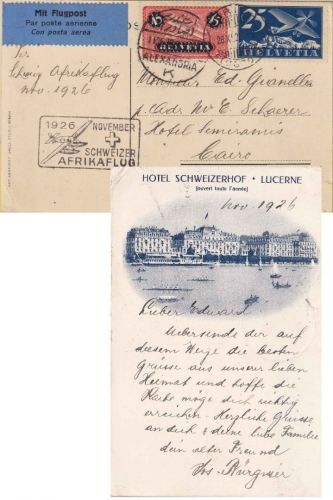 Mit Flugpost
Par poste aérienne
Con posta aerea
Per
Schweiz Afrikaflug
nov. 1926
45
45
HELVETIA
ALEXANDRIA
25
HELVETIA
Monsieur Ed.
p. Adr Mr E. Schaerer
Hotel Semiramis
Cairo
1926 NOVEMBER
SCHWEIZER
AFRIKAFLUG
HOTEL SCHWEIZERHOF · LUCERNE
(ouvert toute l'année)
nov. 1926
Lieber Edward
Uebersende dir auf
diesem Wege die besten
Grüsse aus unserer lieben
Heimat und hoffe die
Karte möge dich richtig
erreichen. Herzliche Grüsse
an dich & deine liebe Familie
dein alter Freund
Jos. Bürgisser